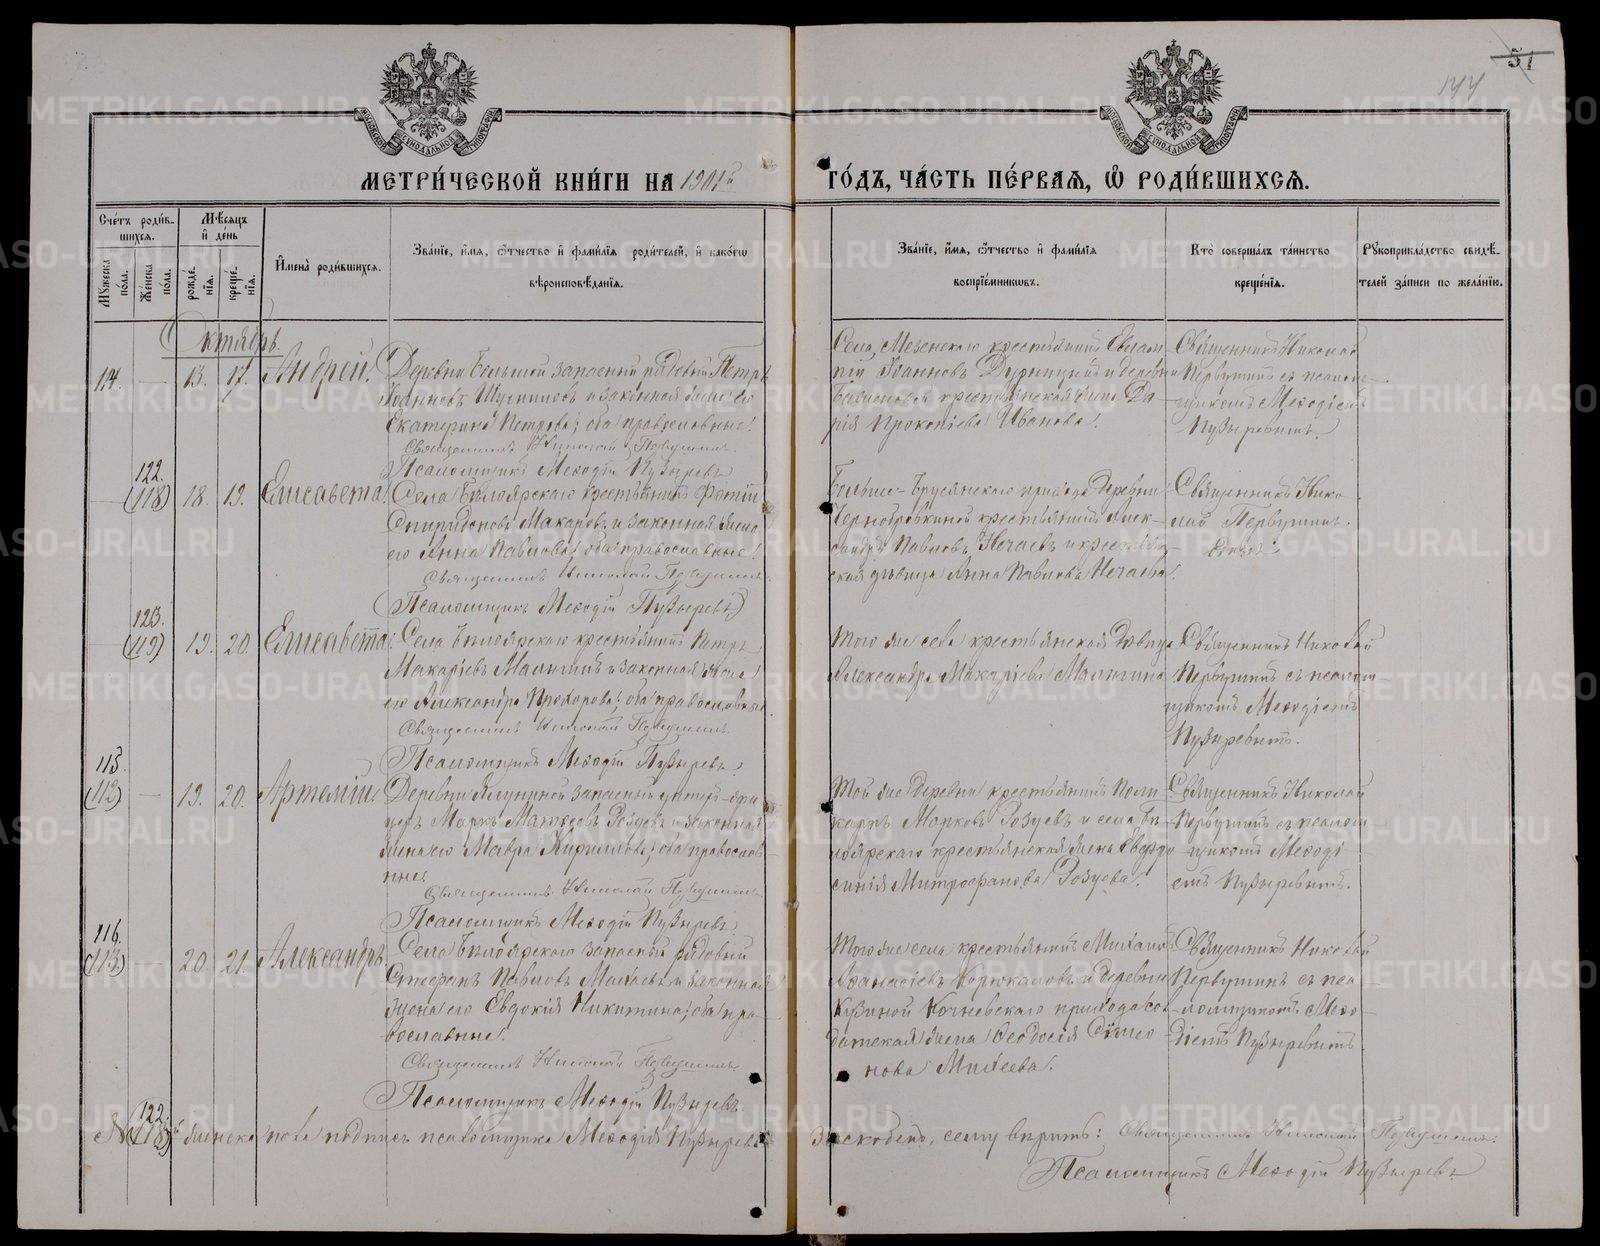 144
51
МОСКОВСКОЙ СѴНОДАЛЬНОЙ ТИПОГРАФІИ
МОСКОВСКОЙ СѴНОДАЛЬНОЙ ТИПОГРАФІИ
МЕТРИ́ЧЕСКОЙ КНИ́ГИ НА 1901й ГО́ДЪ, ЧА́СТЬ ПЕ́РВАЯ, Ѡ҆ РОДИ́ВШИХСЯ.
Сче́тъ роди́в-
шихся.
Мꙋжеска по́ла.
Же́нска по́ла.
Мѣ́сяцъ и҆ де́нь
рожде́нїя.
креще́нїя.
И҆мена̀ роди́вшихся.
Зва́нїе, и҆́мя, ѻ҆́тчество и҆ фами́лїя роди́телей, и҆ како́гѡ
вѣроисповѣ́данїя.
Зва́нїе, и҆́мя, ѻ҆́тчество и҆ фами́лїя
воспрїе́мникѡвъ.
Кто̀ соверша́лъ та́инство
креще́нїя.
Рꙋкоприкла́дство свидѣ́-
телей за́писи по жела́нїю.
Октябрь.
114. — 13. 17. Андрей.
Деревни Большой запасный рядовой Петръ
Іоанновъ и законная жена его
Екатерина Петрова; оба православные.
Священникъ Николай Первушинъ.
Псаломщикъ Меѳодій Пузыревъ
Села Мезенскаго крестьянинъ
Іоанновъ и деревни
крестьянская жена Да-
рія Прокопіева Иванова.
Священникъ Николай
Первушинъ съ псалом-
щикомъ Меѳодіемъ
Пузыревымъ.
122.
(118) 18. 19. Елисавета.
Села Бѣлоярскаго крестьянинъ Фотій
Спиридоновъ Макаровъ и законная жена
его Анна Павлова; оба православные.
Священникъ Николай Первушинъ.
(Псаломщикъ Меѳодій Пузыревъ)
Больше-Брусянскаго прихода деревни
Чернобровкиной крестьянинъ Алек-
сандръ Павловъ Нечаевъ и крестьян-
ская дѣвица Анна Павлова Нечаева.
Священникъ Нико-
лай Первушинъ.
123.
(119) 19. 20. Елисавета.
Села Бѣлоярскаго крестьянинъ Петръ
Макаріевъ Малыгинъ и законная жена
его Александра Прохорова; оба православные.
Священникъ Николай Первушинъ.
Псаломщикъ Меѳодій Пузыревъ.
Того же села крестьянская дѣвица
Александра Макаріева Малыгина
Священникъ Николай
Первушинъ съ псалом-
щикомъ Меѳодіемъ
Пузыревымъ.
115.
(112) — 19. 20. Артемій.
Деревни запасный унтеръ-офи-
церъ Маркъ Матѳеевъ Розуевъ и законная
жена его Мавра Кириллова; оба православ-
ные.
Священникъ Николай Первушинъ.
Псаломщикъ Меѳодій Пузыревъ.
Той же деревни крестьянинъ Поли-
карпъ Марковъ Розуевъ и села Бѣ-
лоярскаго крестьянская жена Евдо-
Митрофанова Розуева.
Священникъ Николай
Первушинъ съ псалом-
щикомъ Меѳоді-
емъ Пузыревымъ.
116.
(113) — 20. 21. Александръ.
Села Бѣлоярскаго запасный рядовой
Стефанъ Павловъ Михѣевъ и законная
жена его Евдокія Никитина; оба пра-
вославные.
Священникъ Николай Первушинъ.
Псаломщикъ Меѳодій Пузыревъ.
Того же села крестьянинъ Михаилъ
Аѳанасіевъ и деревни
Кочневскаго прихода сол-
датская жена Ѳеодосія Симео-
нова Михѣева.
Священникъ Николай
Первушинъ съ пса-
ломщикомъ Меѳо-
діемъ Пузыревымъ
122.
№ (118) женска пола подпись псаломщика Меѳодія Пузырева заскоблено, сему вѣрить: Священникъ Николай Первушинъ.
Псаломщикъ Меѳодій Пузыревъ.